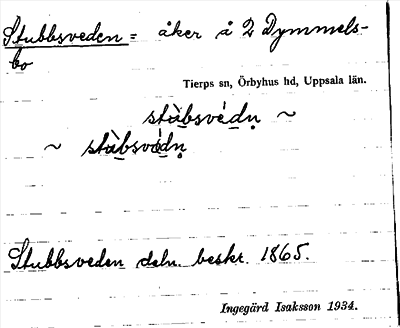 Stubbsveden = åker å 2 Dymmels-
bo
Tierps sn, Örbyhus hd, Uppsala län.
stàbsvédn ~
~ stàbsvèdn
Stubbsveden deln. beskr. 1865.
Ingegärd Isaksson 1934.